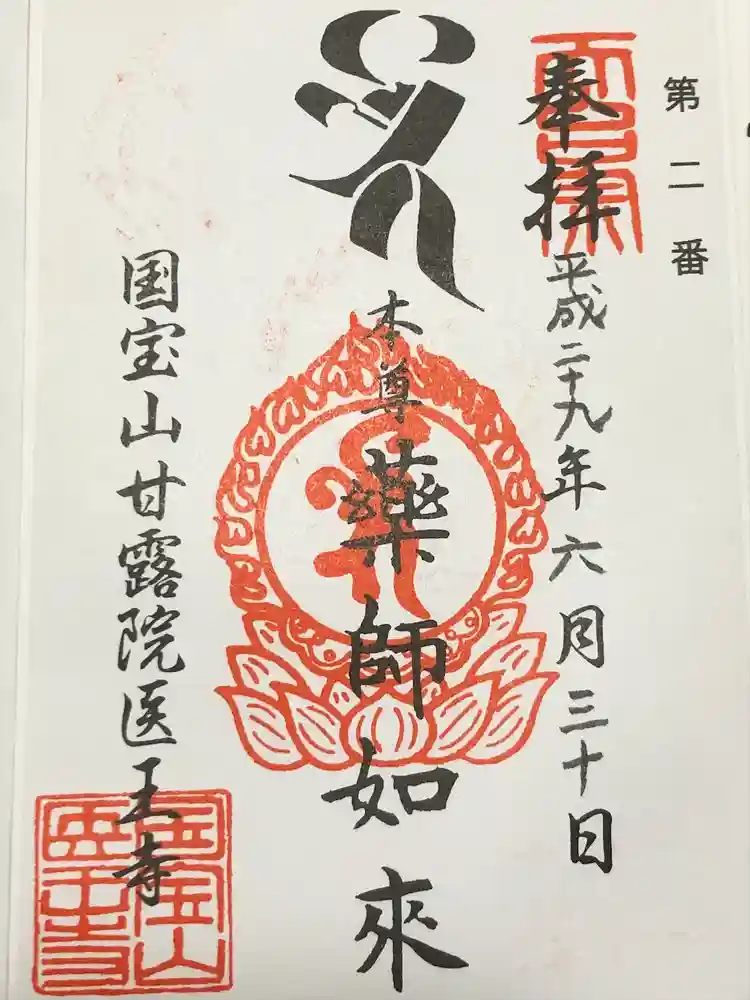 第二番
奉拝
平成二十九年六月三十日
本尊
薬師如來
国宝山甘露院医王寺